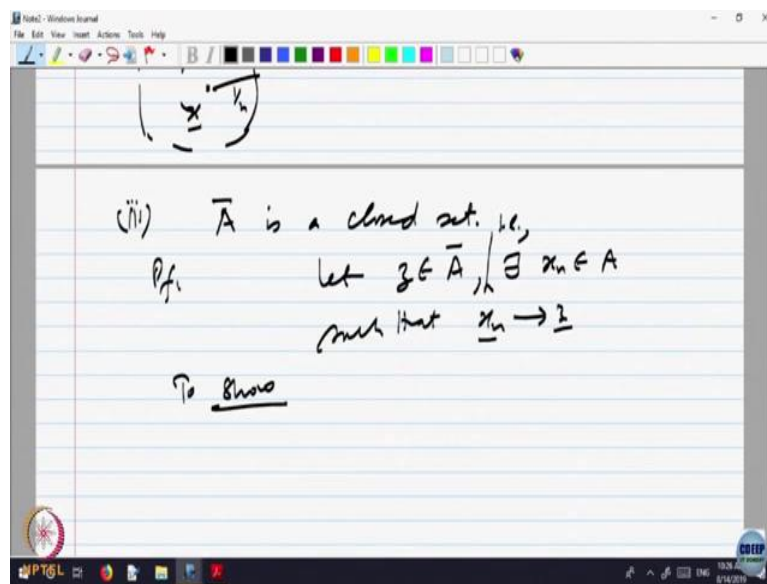 Note2 - Windows Journal
File Edit View Insert Actions Tools Help
B I
x 1/n
(iii) Ā is a closed set. i.e.,
Pf. Let z ∈ Ā, ∃ xn ∈ A
such that xn → z
To show
NPTEL
CDEEP
ENG
8/14/2019